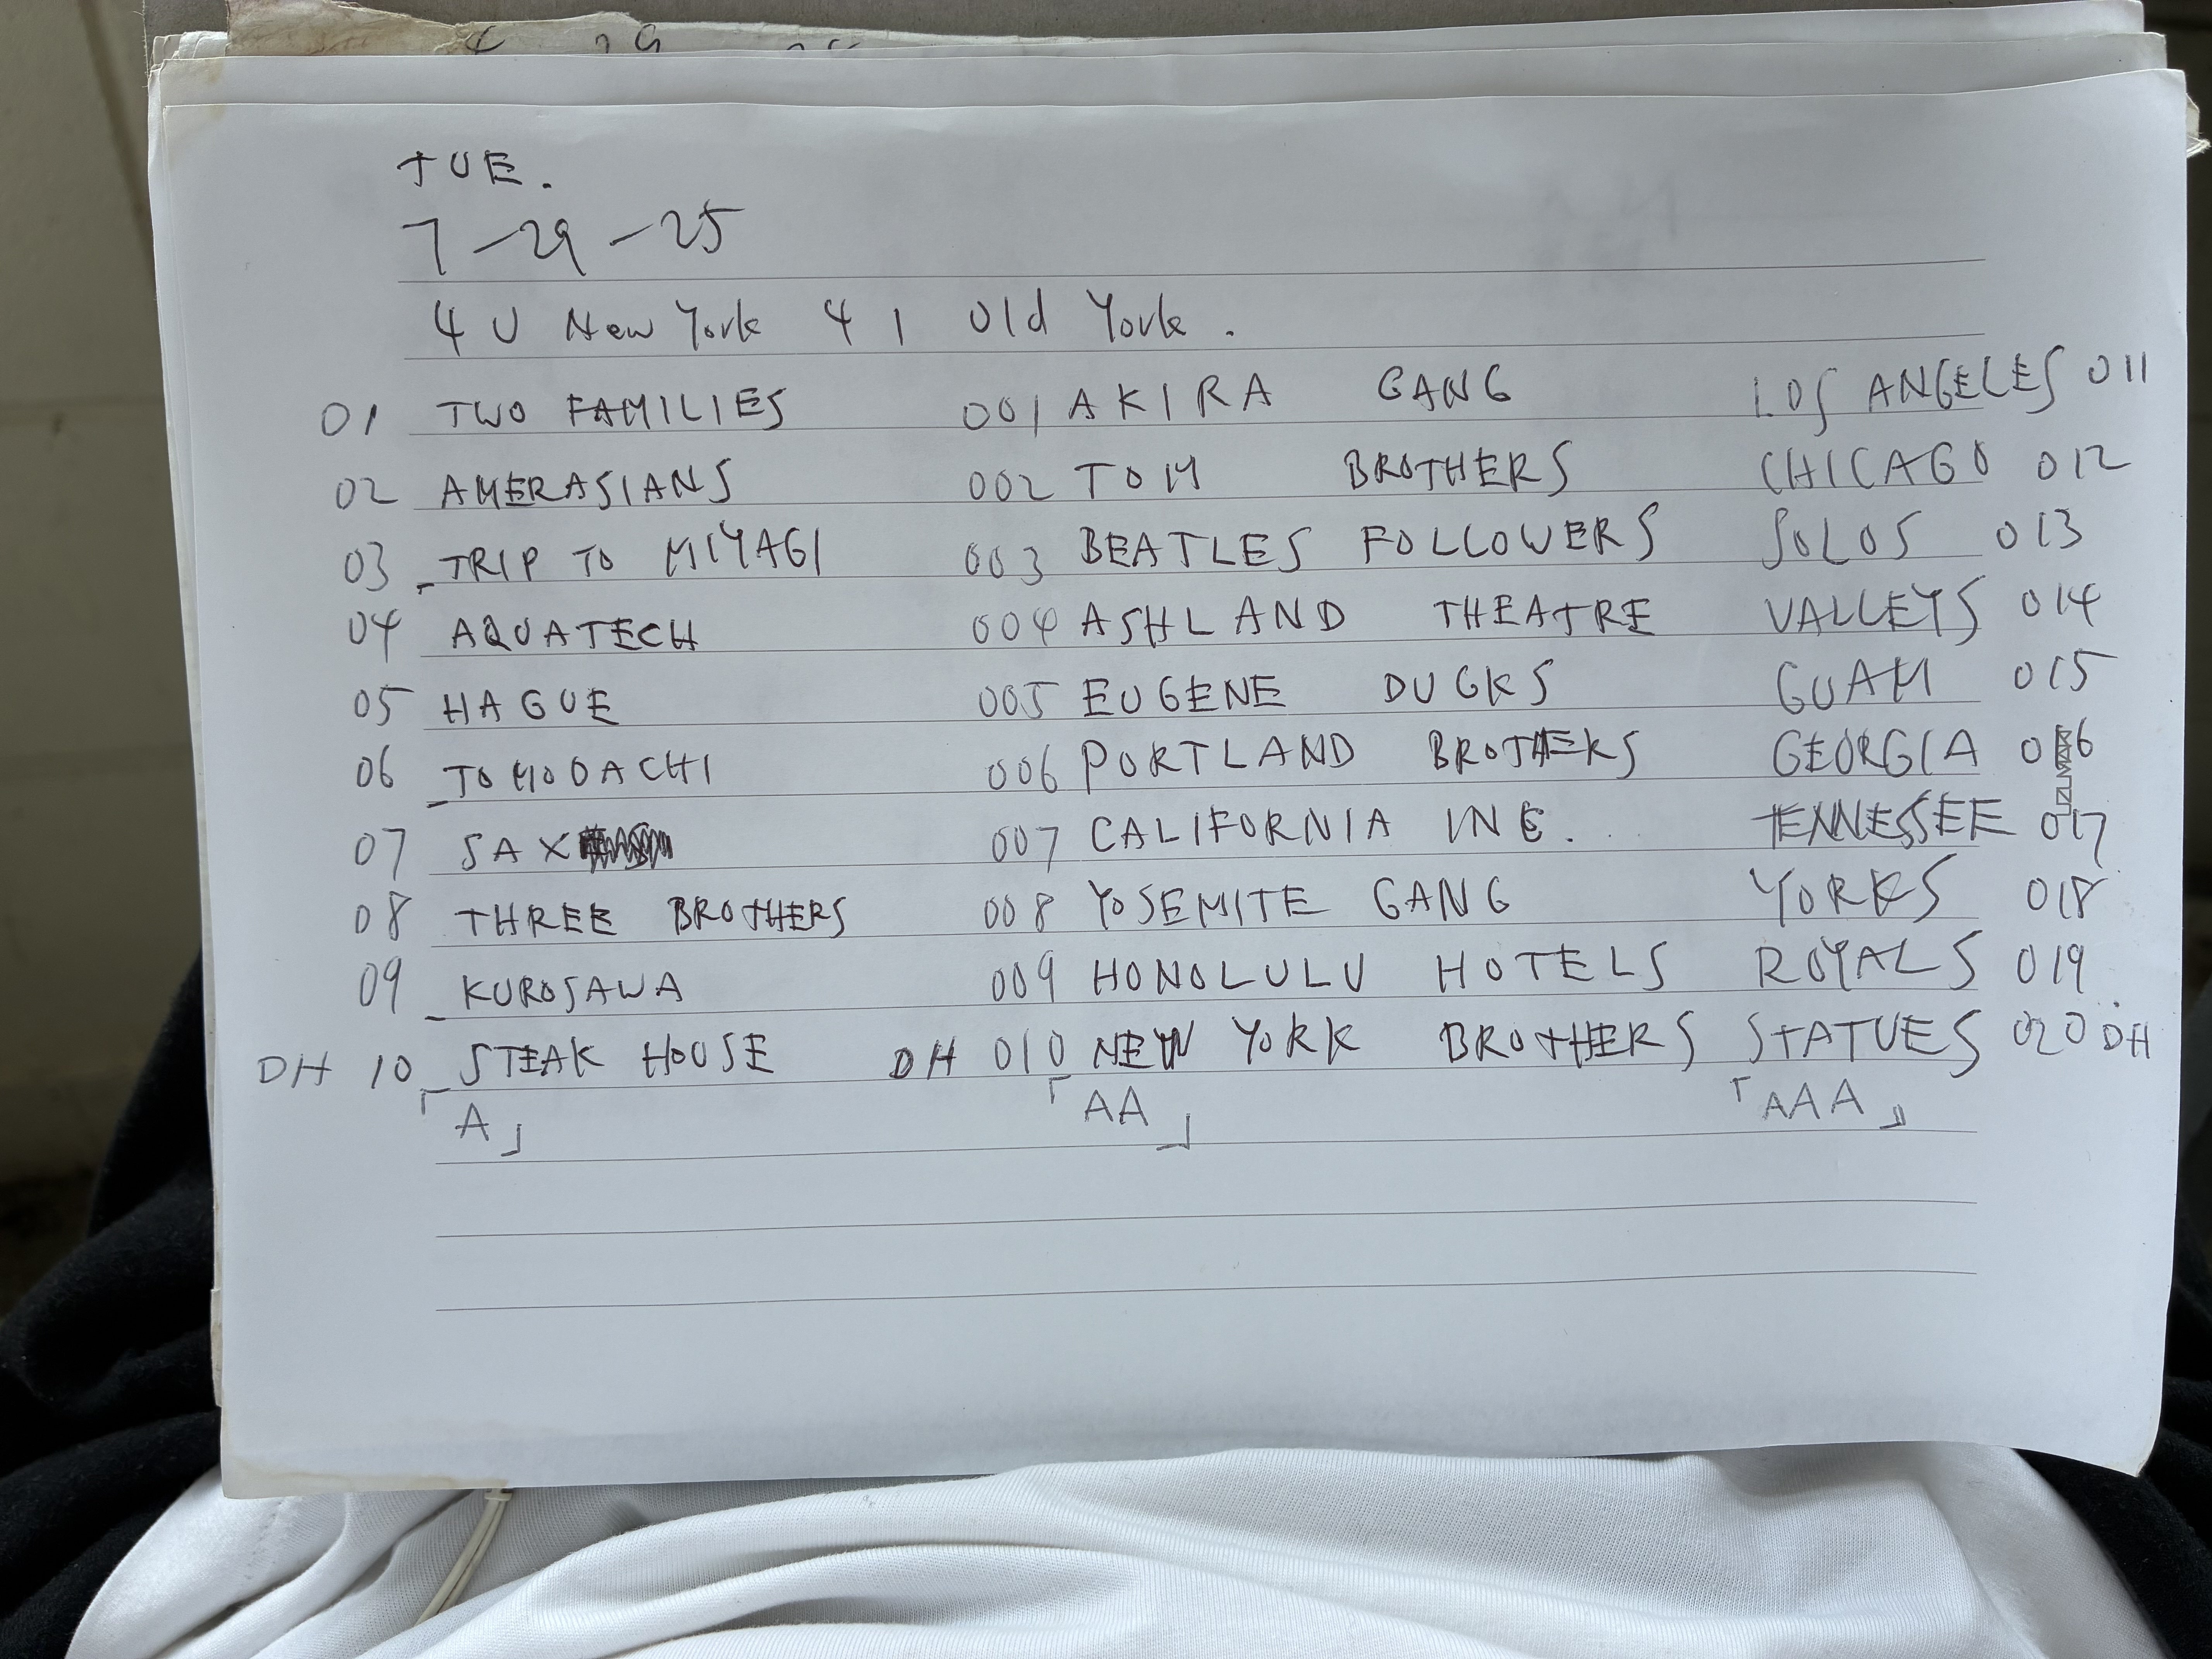 TUE.
7-29-25
4 U New York 4 1 Old York.
01 TWO FAMILIES 001 AKIRA GANG LOS ANGELES 011
02 AMERASIANS 002 TOM BROTHERS CHICAGO 012
03 TRIP TO MIYAGI 003 BEATLES FOLLOWERS SOLOS 013
04 AQUATECH 004 ASHLAND THEATRE VALLEYS 014
05 HAGUE 005 EUGENE DUCKS GUAM 015
06 TOMODACHI 006 PORTLAND BROTHERS GEORGIA 016
07 SAX 007 CALIFORNIA INC. TENNESSEE 017
08 THREE BROTHERS 008 YOSEMITE GANG YORKS 018
09 KUROSAWA 009 HONOLULU HOTELS ROYALS 019
DH 10 STEAK HOUSE DH 010 NEW YORK BROTHERS STATUES 020 DH
「A」 「AA」 「AAA」